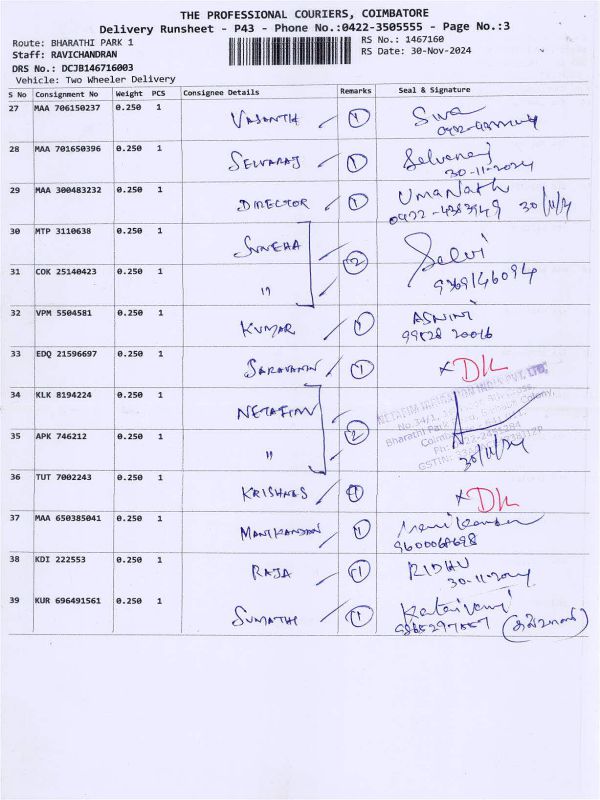 THE PROFESSIONAL COURIERS, COIMBATORE
Delivery Runsheet - P43 - Phone No.:0422-3505555 - Page No.:3
Route: BHARATHI PARK 1
RS No.: 1467160
Staff: RAVICHANDRAN
RS Date: 30-Nov-2024
DRS No.: DCJB146716003
Vehicle: Two Wheeler Delivery
S No Consignment No Weight PCS Consignee Details Remarks Seal & Signature
27 MAA 706150237 0.250 1 VASANTH 1
28 MAA 701650396 0.250 1 SELVARAJ 1 Selvaraj
30-11-2024
29 MAA 300483232 0.250 1 DIRECTOR 1 UmaNath
30/11/24
30 MTP 3110638 0.250 1 SUNEHA 2 Selvi
31 COK 25140423 0.250 1 "
32 VPM 5504581 0.250 1 KUMAR 1
33 EDQ 21596697 0.250 1 SARAVANAN 1 x DK
34 KLK 8194224 0.250 1 NETAFIM 2
35 APK 746212 0.250 1 " 30/11/24
36 TUT 7002243 0.250 1 KRISHNAS 1 x DK
37 MAA 650385041 0.250 1 MANIKANDAN 1 Manikandan
38 KDI 222553 0.250 1 RAJA 1 RIDHU
30-11-2024
39 KUR 696491561 0.250 1 SUMATHI 1